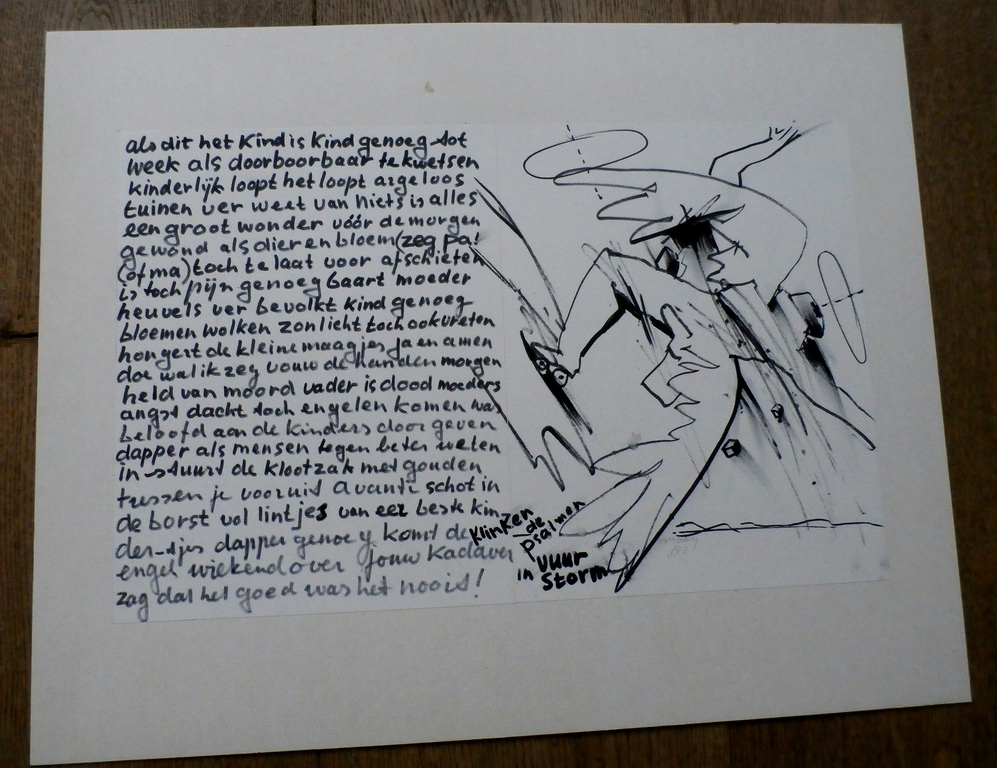 als dit het Kind is Kind genoeg tot
week als doorboorbaar te kwetsen
kinderlijk loopt het loopt argeloos
tuinen ver weet van niets is alles
een groot wonder vóór de morgen
gewond als dier en bloem (zeg pa!
(of ma) toch te laat voor afschieten
is toch pijn genoeg baart moeder
heuvels ver bevolkt kind genoeg
bloemen wolken zonlicht toch ook vreten
hongert de kleine maagjes ja en amen
doe wat ik zeg vouw de handen morgen
held van moord vader is dood moeders
angst dacht toch engelen komen was
beloofd aan de kinders door geven
dapper als mensen tegen beter weten
in stuurt de klootzak met gouden
tressen je vooruit avanti schot in
de borst vol lintjes van eer best kin
der-tjes dapper genoeg komt de
engel wiekend over jouw kadaver
zag dat het goed was het nooit!
Klinken
de
psalmen
in vuur
storm